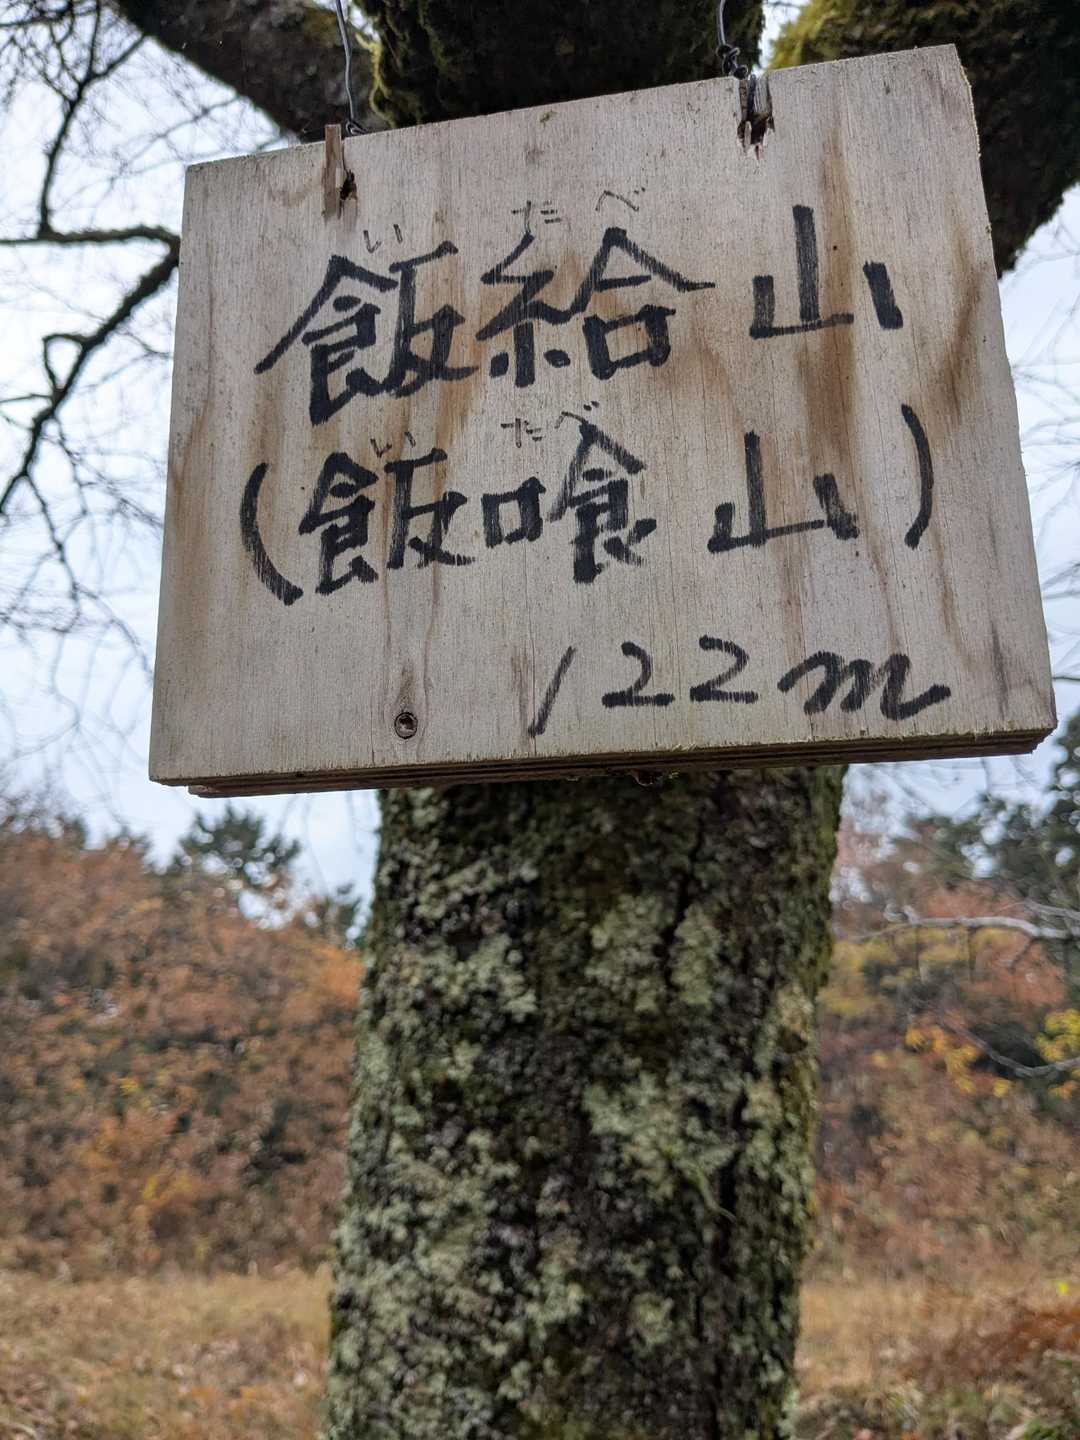 い たべ
飯給山
い たべ
(飯喰山)
122m